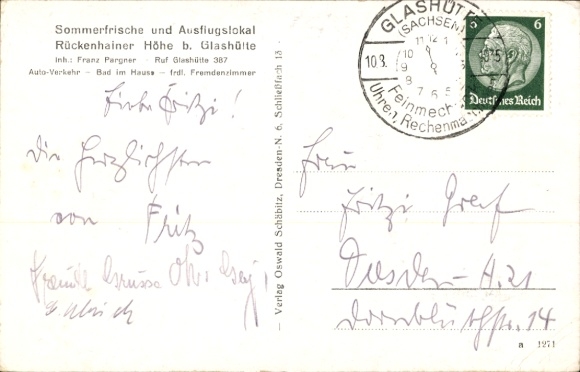 Sommerfrische und Ausflugslokal
Rückenhainer Höhe b. Glashütte
Inh.: Franz Pargner · Ruf Glashütte 387
Auto-Verkehr — Bad im Hause — frdl. Fremdenzimmer
Liebe Fritzi!
die herzlichsten
von Fritz
Grüsse
— Verlag Oswald Schäbitz, Dresden-N. 6, Schließfach 13
GLASHÜTTE
(SACHSEN)
10.8.
11 12 1
10
9
8
7 6 5
Feinmech
Uhren, Rechenma
6
Deutsches Reich
Frau
Fritzi Graf
Dresden-A. 21
Dornblüthstr. 14
a 1271